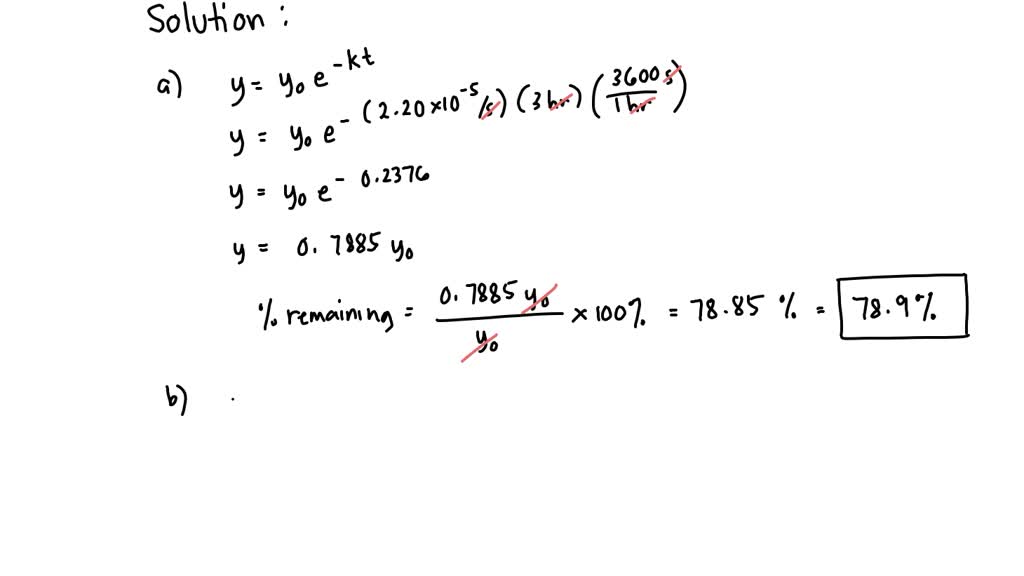 Solution :
a) y = y₀ e^-kt
y = y₀ e^-(2.20×10^-5/s)(3hr)(3600 s/1 hr)
y = y₀ e^-0.2376
y = 0.7885 y₀
% remaining = 0.7885 y₀/y₀ × 100% = 78.85 % = 78.9%
b)